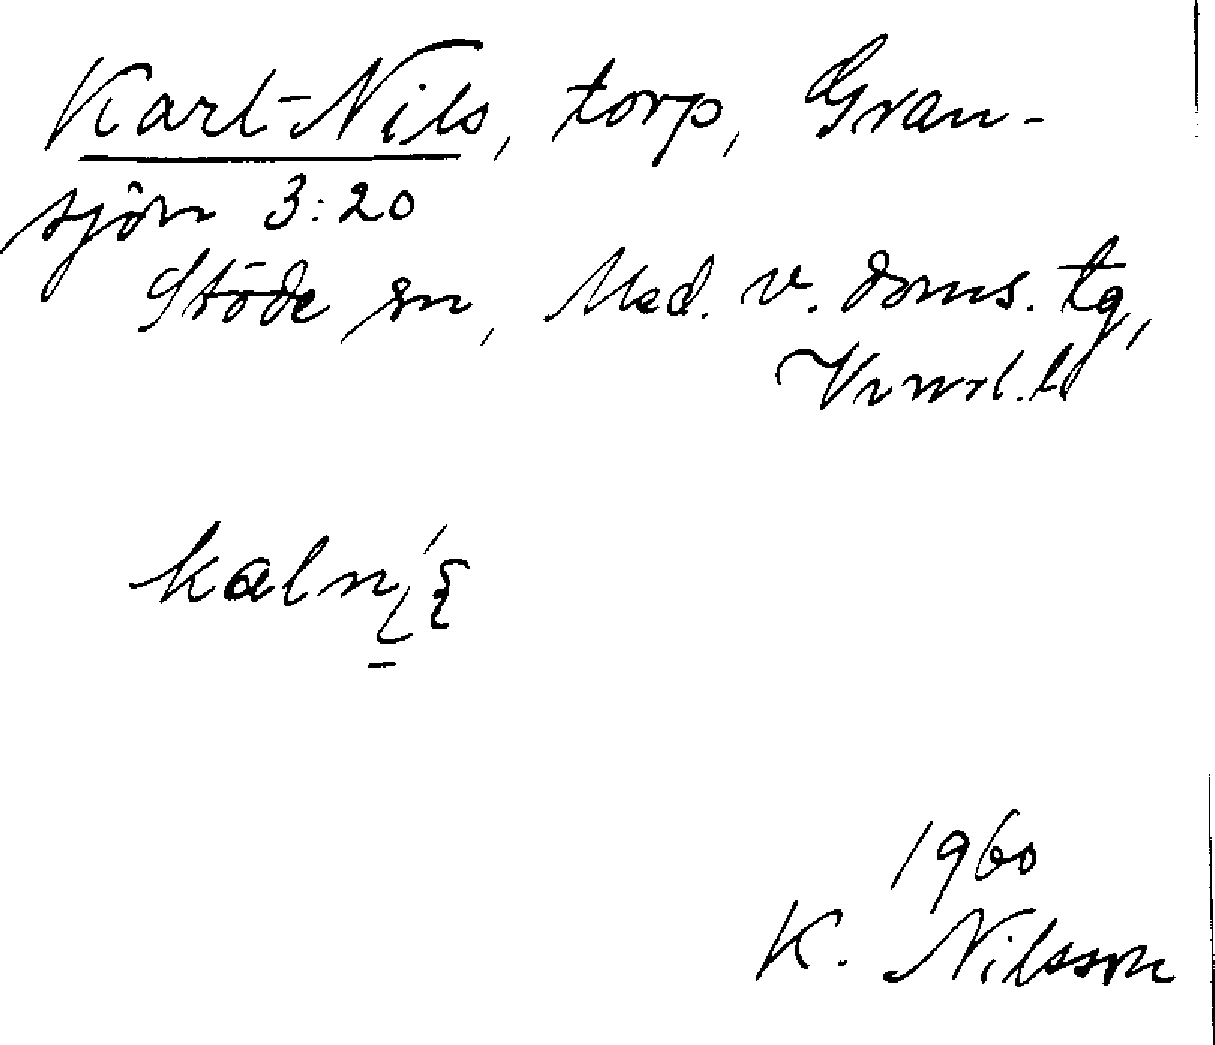 Karl-Nils, torp, Gran-
sjön 3:20
Stöde sn, Med. v. doms. tg,
Vrnrl. l.
1960
K. Nilsson